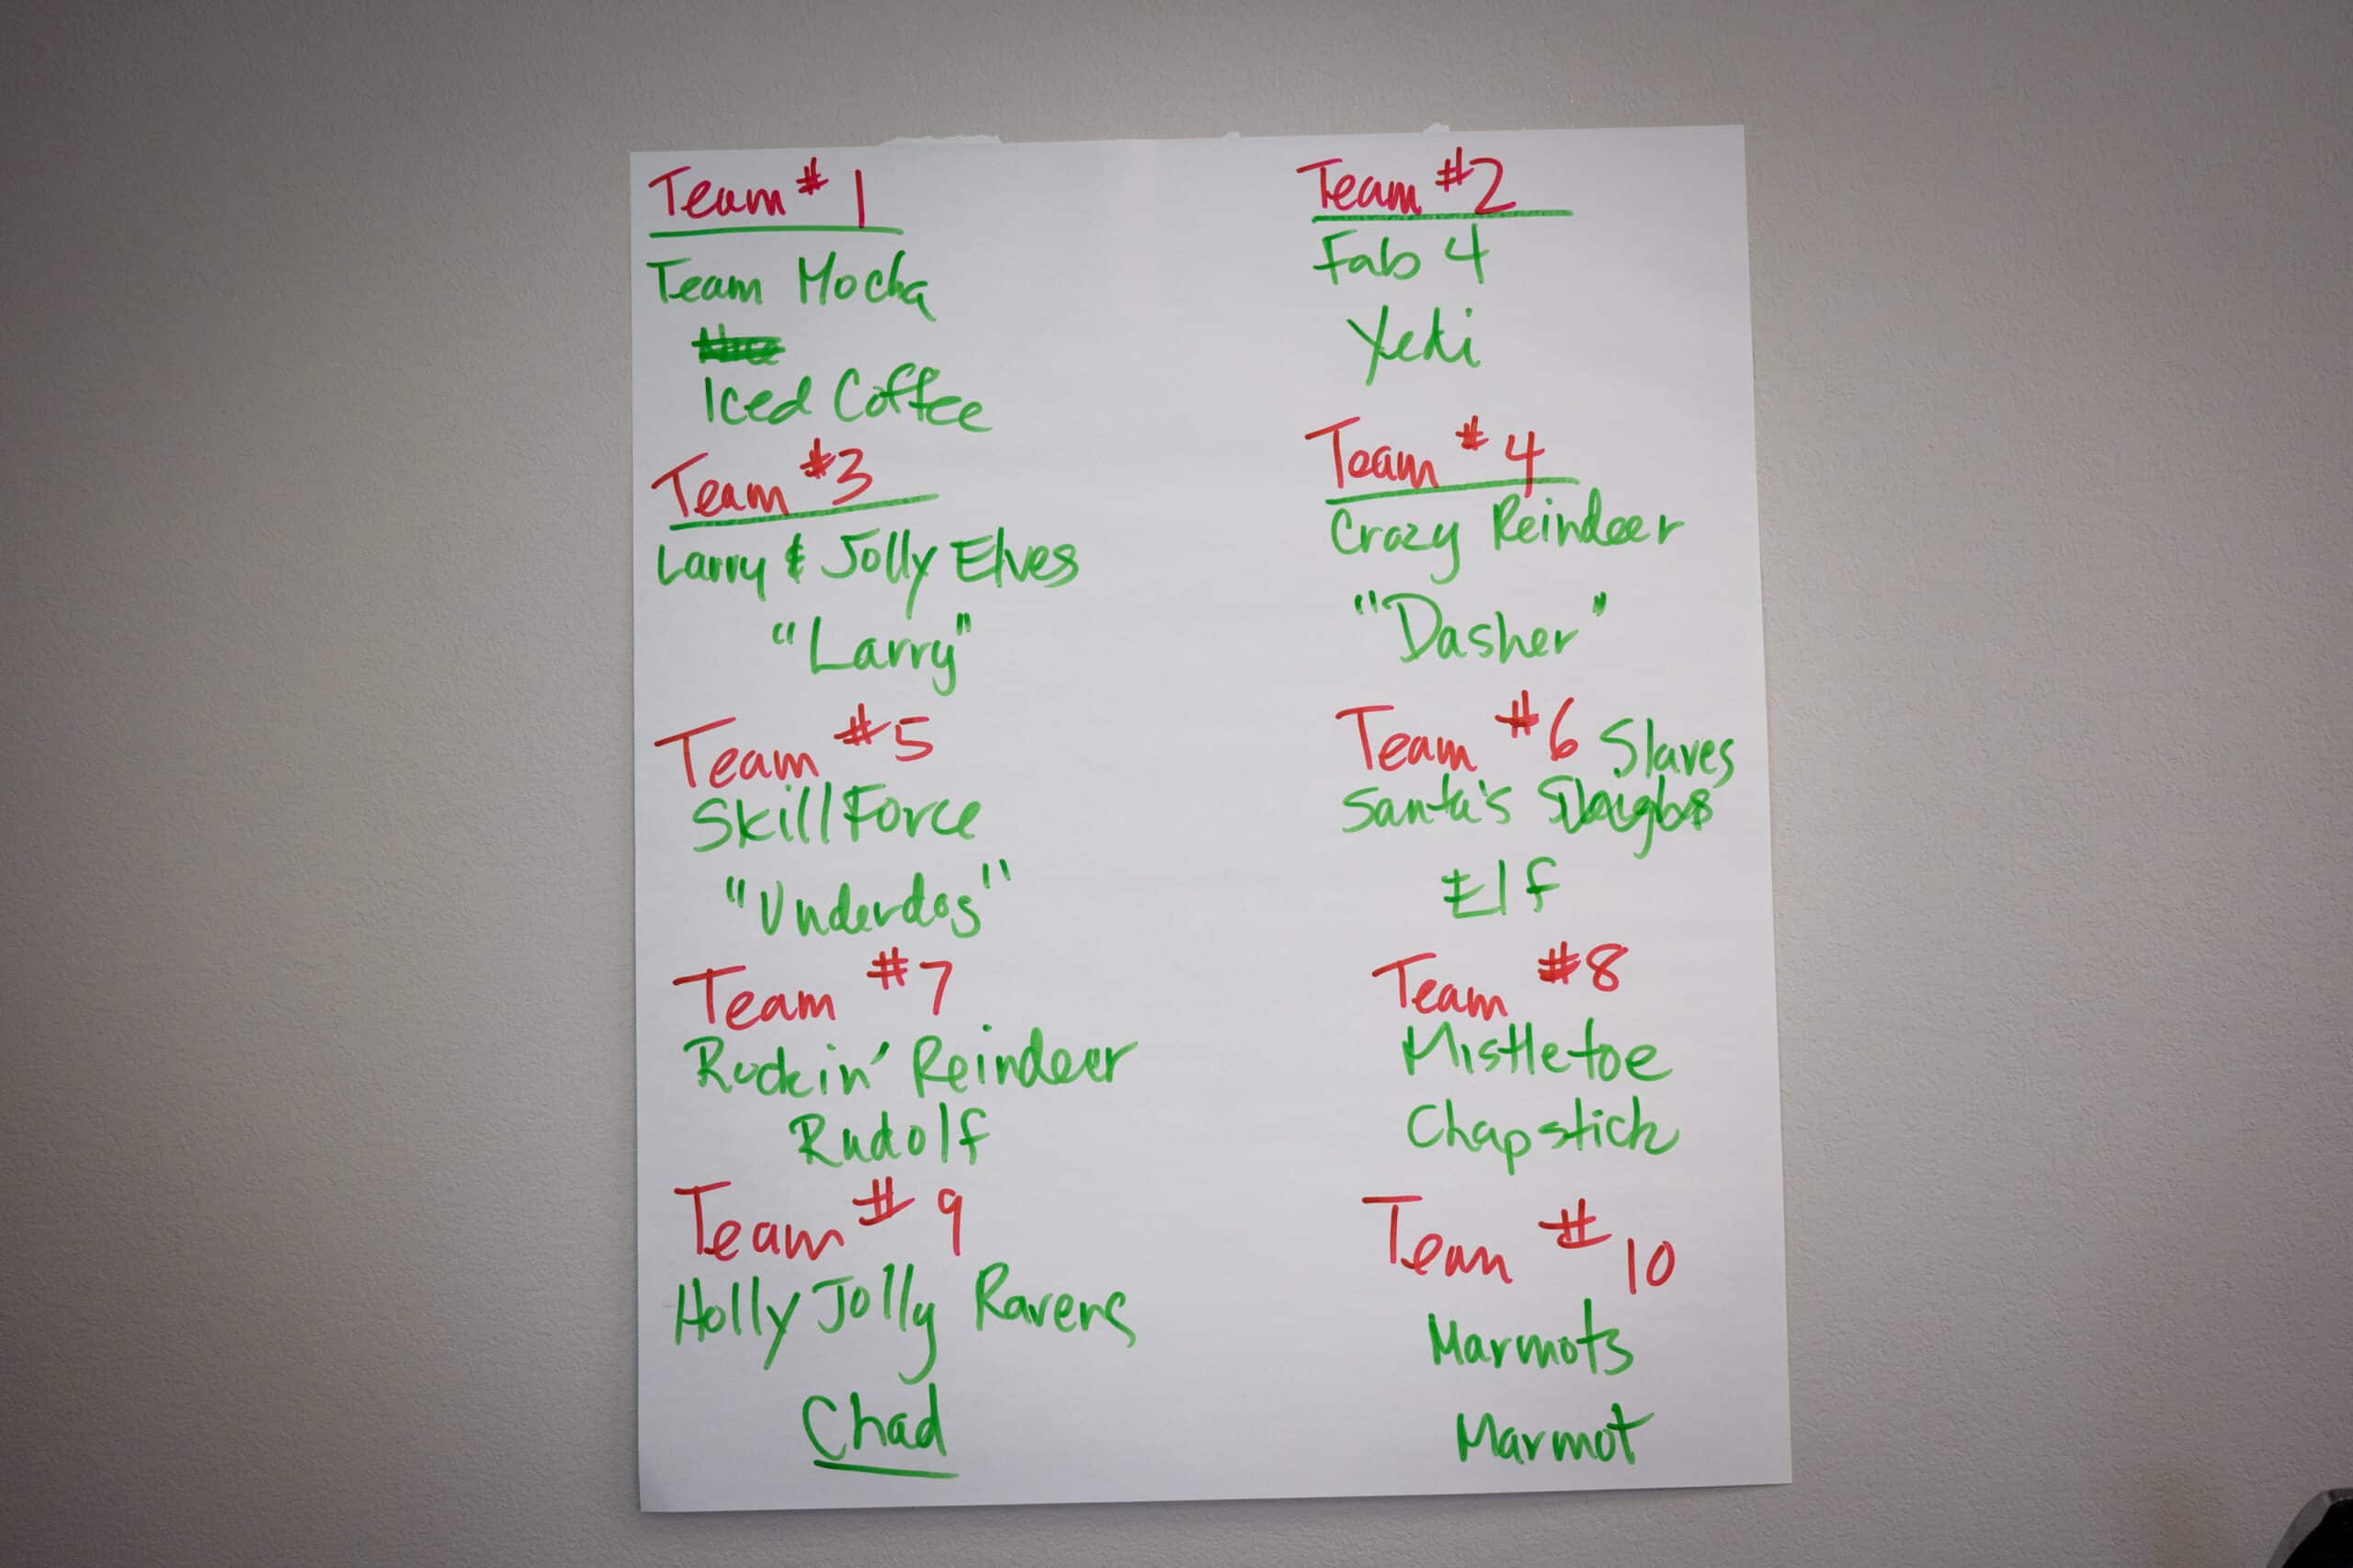 Team #1
Team Mocha
Iced Coffee
Team #2
Fab 4
Yeti
Team #3
Larry & Jolly Elves
"Larry"
Team #4
Crazy Reindeer
"Dasher"
Team #5
SkillForce
"Underdog"
Team #6 Slaves
Santa's
Elf
Team #7
Rockin' Reindeer
Rudolf
Team #8
Mistletoe
Chapstick
Team #9
Holly Jolly Ravens
Chad
Team #10
Marmots
Marmot